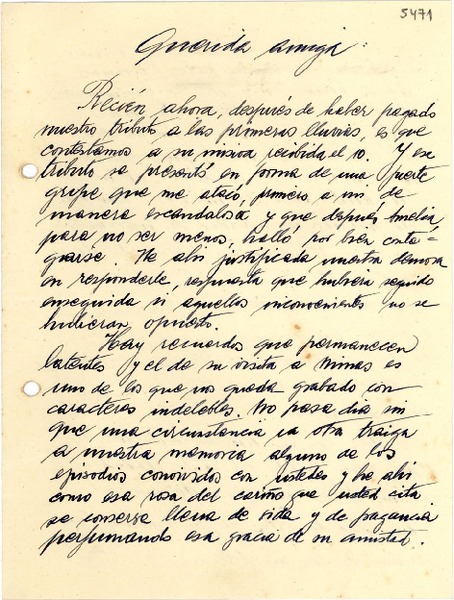 5471
Querida amiga:
Recién ahora, después de haber pagado
nuestro tributo a las primeras lluvias, es que
contestamos a su misiva recibida el 10. Y ese
tributo se presentó en forma de una fuerte
gripe que me atacó, primero a mi de
manera escandalosa y que después Amelia
para no ser menos, halló por bien conta-
giarse. He ahi justificada nuestra demora
en responderle, respuesta que hubiera seguido
enseguida si aquellos inconvenientes no se
hubieran opuesto.
Hay recuerdos que permanecen
latentes y el de su visita a Minas es
uno de los que nos queda grabado con
caracteres indelebles. No pasa dia sin
que una circunstancia u otra traiga
a nuestra memoria alguno de los
episodios convividos con ustedes y he ahi
como esa rosa del cariño que usted cita
se conserva llena de vida y de fragancia
perfumando esa gracia de su amistad.